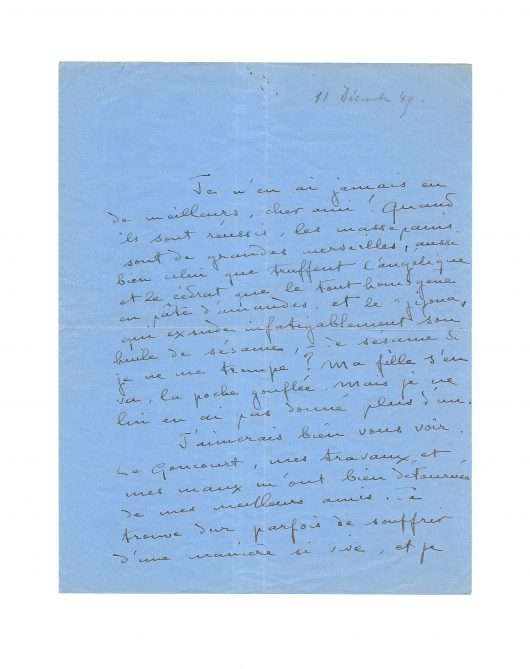 11 Décembre 49.
Je n'en ai jamais eu
de meilleurs, cher ami! Quand
ils sont réussis, les massepains
sont de grandes merveilles, aussi
bien celui que truffent l'angélique
et le cédrat que le tout homogène
en pâte d'amandes, et le "jijona"
qui exsude infatigablement son
huile de sésame, de sésame si
je ne me trompe? Ma fille s'en
va, la poche gonflée. Mais je ne
lui en ai pas donné plus d'un.
J'aimerais bien vous voir.
Le Goncourt, mes travaux, et
mes maux m'ont bien détournée
de mes meilleurs amis. Je
trouve dur parfois de souffrir
d'une manière si vive, et je